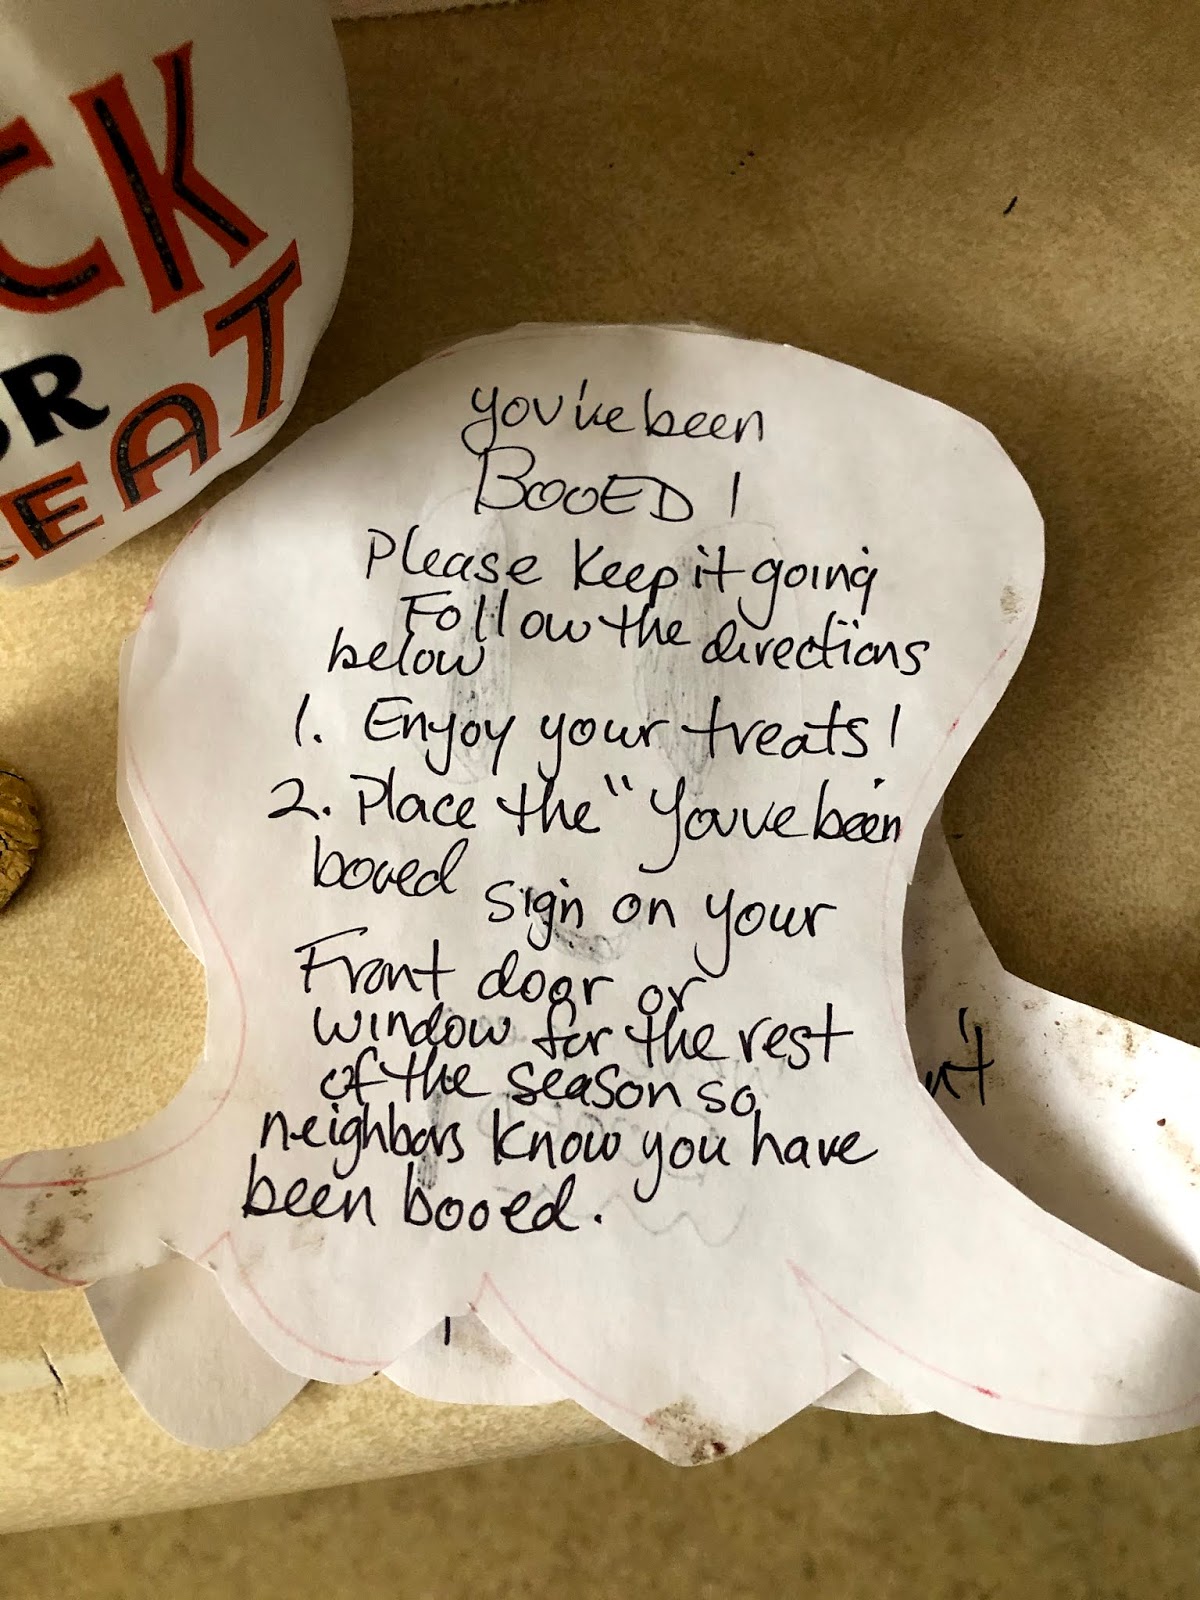 CK
OR
EAT
you've been
BOOED!
Please keep it going
Follow the directions
below
1. Enjoy your treats!
2. Place the "You've been
booed sign on your
Front door or
window for the rest
of the season so
neighbors know you have
been booed.
n't